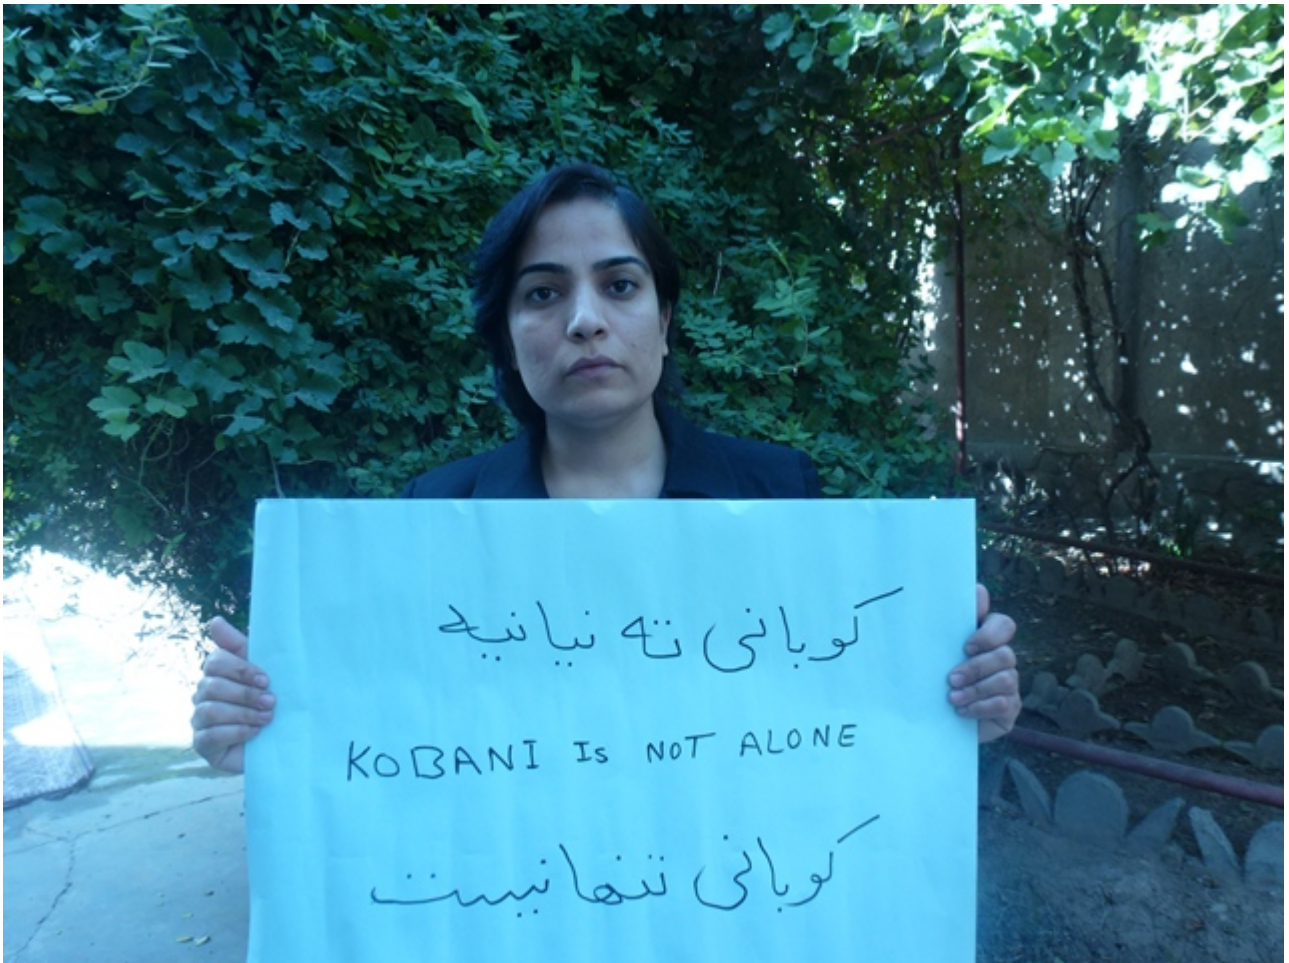 کوبانی ته نیانیه
KOBANI Is NOT ALONE
کوبانی تنها نیست